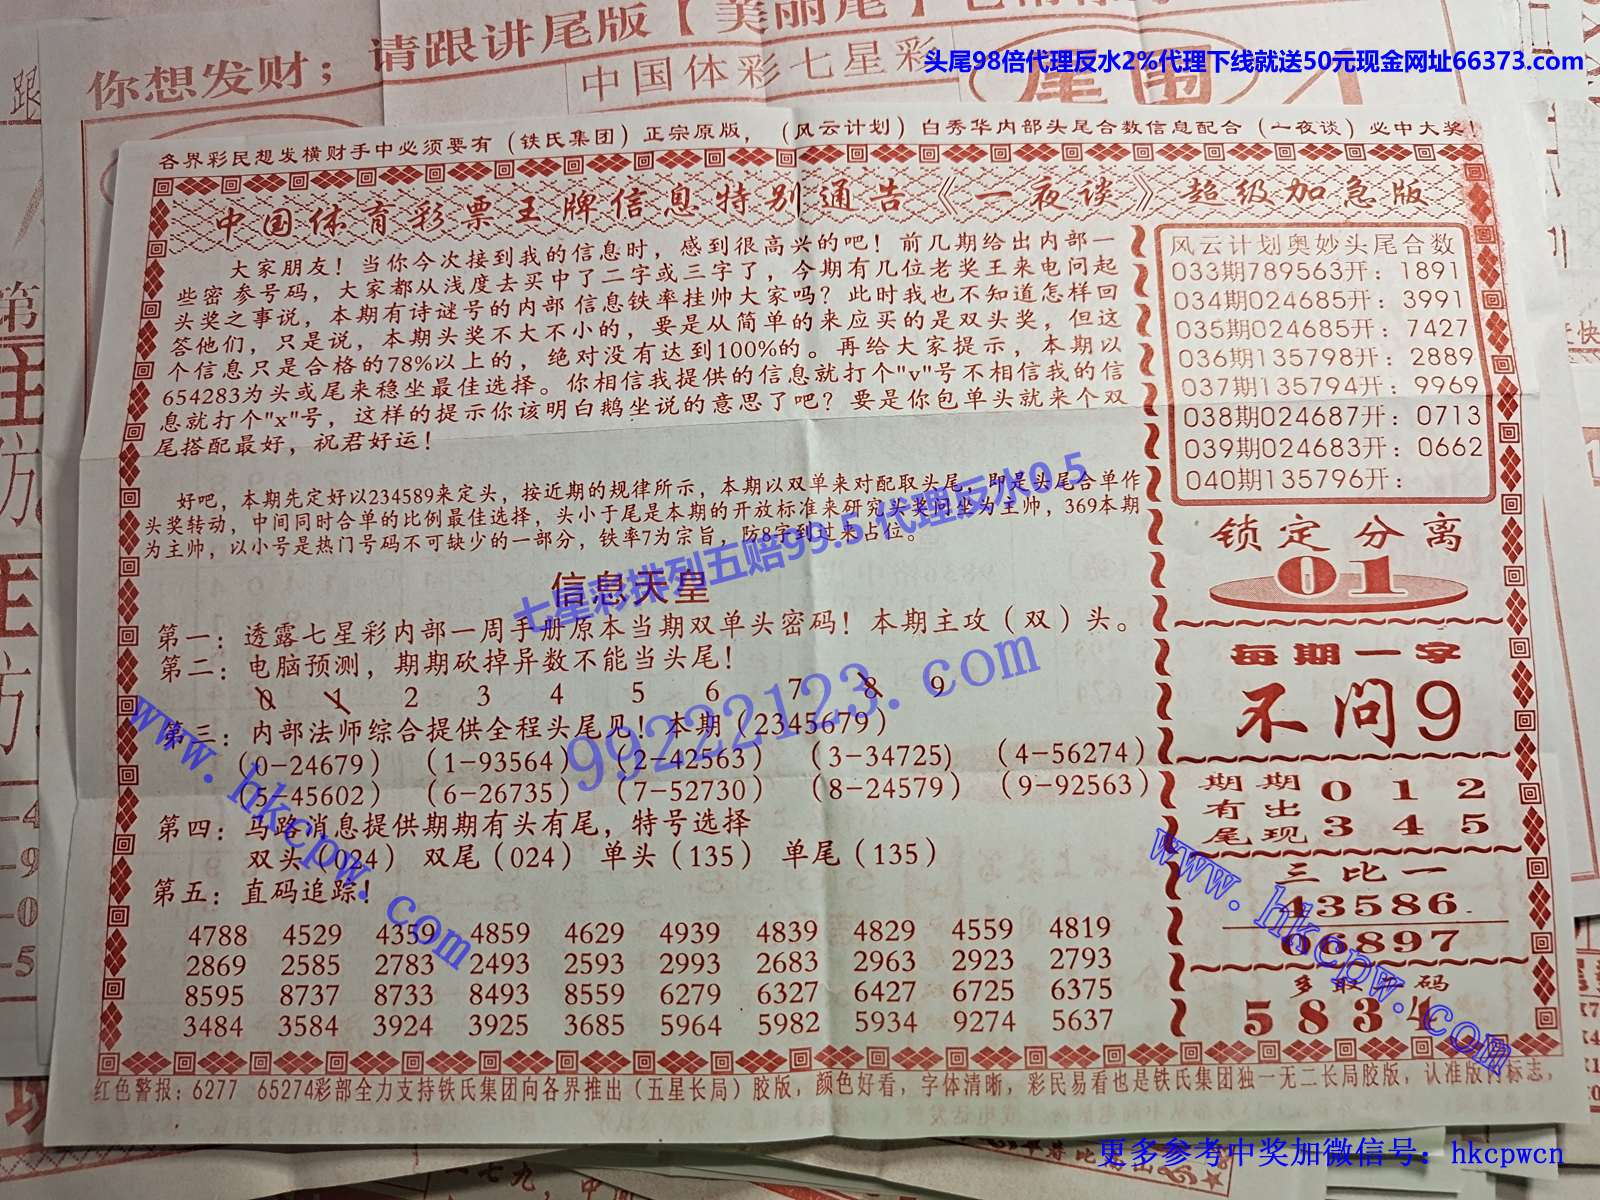 你想发财；请跟讲尾版【美丽尾】
中国体彩七星彩
头尾98倍代理反水2%代理下线就送50元现金网址66373.com
各界彩民想发横财手中必须要有（铁氏集团）正宗原版，（风云计划）白秀华内部头尾合数信息配合（一夜谈）必中大奖！
中国体育彩票王牌信息特别通告《一夜谈》超级加急版
大家朋友！当你今次接到我的信息时，感到很高兴的吧！前几期给出内部一
些密参号码，大家都从浅度去买中了二字或三字了，今期有几位老奖王来电问起
头奖之事说，本期有诗谜号的内部信息铁率挂帅大家吗？此时我也不知道怎样回
答他们，只是说，本期头奖不大不小的，要是从简单的来应买的是双头奖，但这
个信息只是合格的78%以上的，绝对没有达到100%的。再给大家提示，本期以
654283为头或尾来稳坐最佳选择。你相信我提供的信息就打个"v"号不相信我的信
息就打个"x"号，这样的提示你该明白鹅坐说的意思了吧？要是你包单头就来个双
尾搭配最好，祝君好运！
好吧，本期先定好以234589来定头，按近期的规律所示，本期以双单来对配取头尾，即是头尾合单作
头奖转动，中间同时合单的比例最佳选择，头小于尾是本期的开放标准来研究头奖同坐为主帅，369本期
为主帅，以小号是热门号码不可缺少的一部分，铁率7为宗旨，防8字到过来占位。
七星彩排列五赔99.5代理反水0.5
信息天皇
第一：透露七星彩内部一周手册原本当期双单头密码！本期主攻（双）头。
第二：电脑预测，期期砍掉异数不能当头尾！
0 1 2 3 4 5 6 7 8 9
99222123.com
第三：内部法师综合提供全程头尾见！本期（2345679）
（0-24679） （1-93564） （2-42563） （3-34725） （4-56274）
（5-45602） （6-26735） （7-52730） （8-24579） （9-92563）
www.hkcpw.com
第四：马路消息提供期期有头有尾，特号选择
双头（024） 双尾（024） 单头（135） 单尾（135）
第五：直码追踪！
4788 4529 4359 4859 4629 4939 4839 4829 4559 4819
2869 2585 2783 2493 2593 2993 2683 2963 2923 2793
8595 8737 8733 8493 8559 6279 6327 6427 6725 6375
3484 3584 3924 3925 3685 5964 5982 5934 9274 5637
风云计划奥妙头尾合数
033期789563开：1891
034期024685开：3991
035期024685开：7427
036期135798开：2889
037期135794开：9969
038期024687开：0713
039期024683开：0662
040期135796开：
锁定分离
01
每期一字
不问9
期期 0 1 2
有出
尾现 3 4 5
三比一
43586
06897
www.hkcpw.com
5834
红色警报：6277 65274彩部全力支持铁氏集团向各界推出（五星长局）胶版，颜色好看，字体清晰，彩民易看也是铁氏集团独一无二长局胶版，认准版内标志，
更多参考中奖加微信号：hkcpwcn